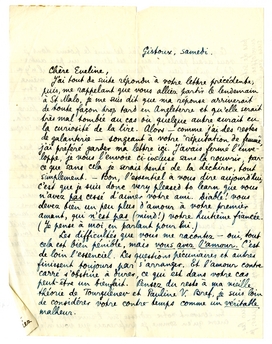 samedi.
Chère Eveline,
J'ai tout de suite répondu à votre lettre précédente,
puis, me rappelant que vous alliez partir le lendemain
à St. Malo, je me suis dit que ma réponse arriverait
de toute façon trop tard en Angleterre et qu'elle serait
très mal tombée au cas où quelque autre aurait eu
la curiosité de la lire. Alors — comme j'ai des restes
de galanterie — songeant à votre réputation de femme,
j'ai préféré garder ma lettre ici. J'avais fermé l'enve-
loppe, je vous l'envoie ci-incluse sans la rouvrir, par-
ce que sans cela je serais tenté de la déchirer, tout
simplement. — Bon, l'essentiel à vous dire aujourd'hui
c'est que je suis done very pleased to learn que vous
n'avez pas cessé d'aimer votre ami. Diable! vous
devez bien un peu plus d'amour à votre premier
amant, qui n'est pas (mind!) votre huitième fiancé.
(Je pense à moi en parlant pour lui.)
Les difficultés que vous me racontez — oui, tout
cela est bien pénible, mais vous avez l'amour. C'est
de loin l'essentiel. Les questions pécuniaires et autres
finissent toujours par s'arranger. Et l'amour contra-
rié s'obstine à durer, ce qui est dans votre cas
peut-être un bienfait. Pensez du reste à ma veille
théorie de Tourguenev et Pauline V. Bref, je suis loin
de considérer votre contre temps comme un véritable
malheur.